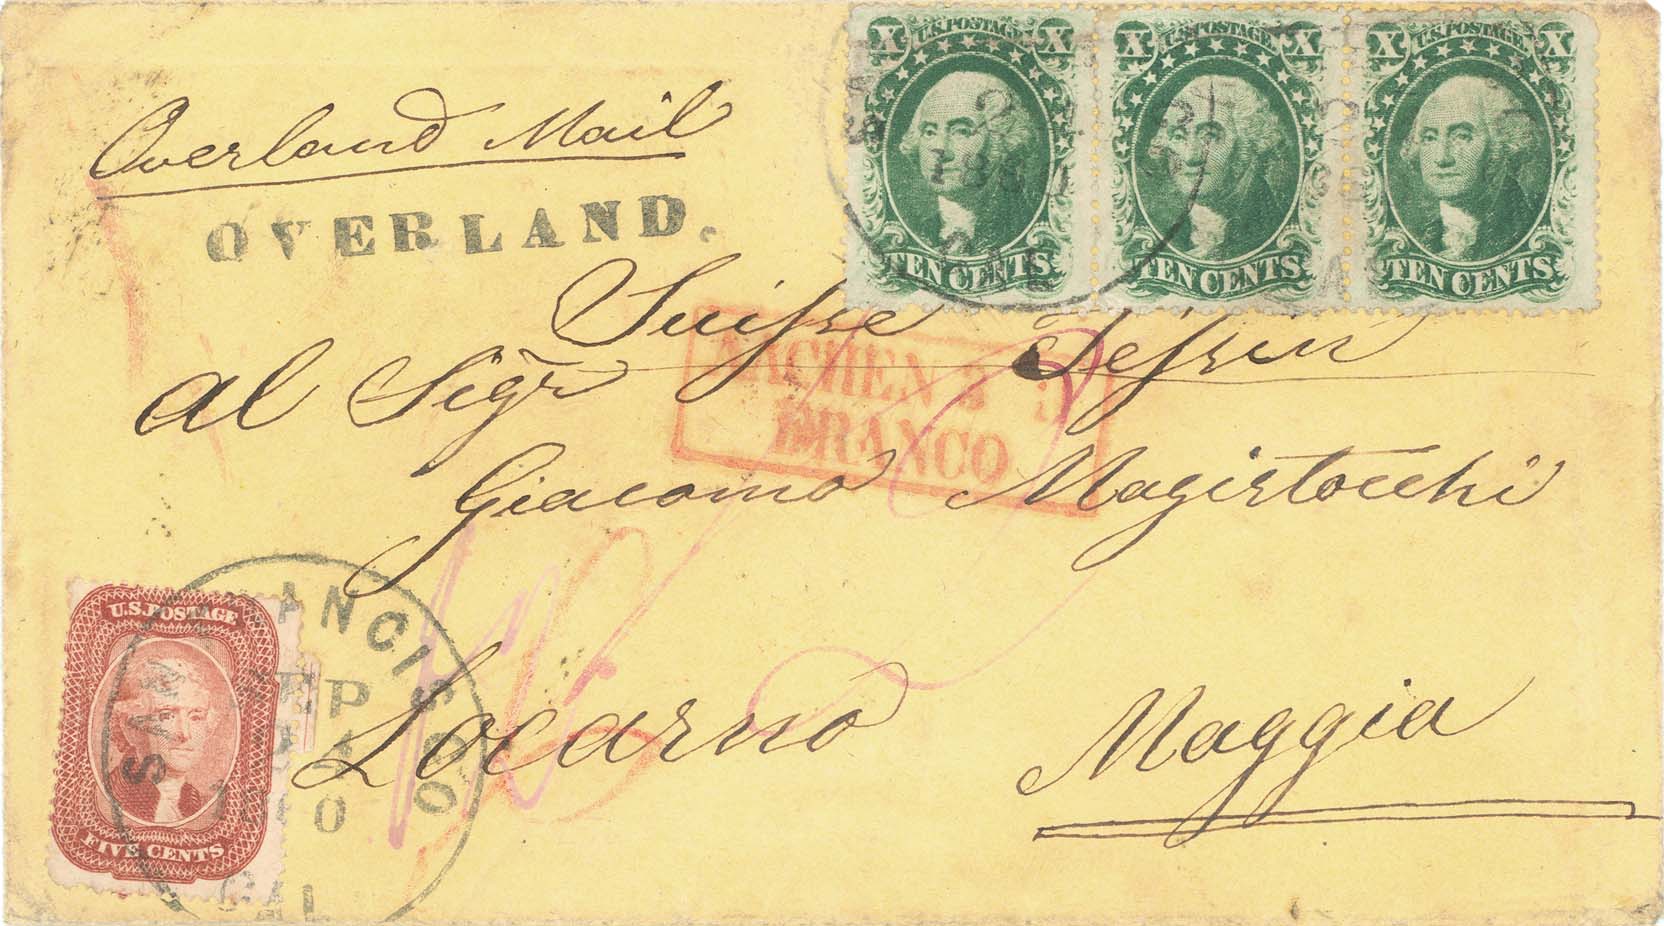 Overland Mail
OVERLAND.
X U.S. POSTAGE X
TEN CENTS
X U.S. POSTAGE X
TEN CENTS
X U.S. POSTAGE X
TEN CENTS
Suisse Tessin
al Sigr
AACHEN 3
FRANCO
Giacomo Magistocchi
Locarno Maggia
U.S. POSTAGE
FIVE CENTS
SAN FRANCISCO
SEP
1860
CAL